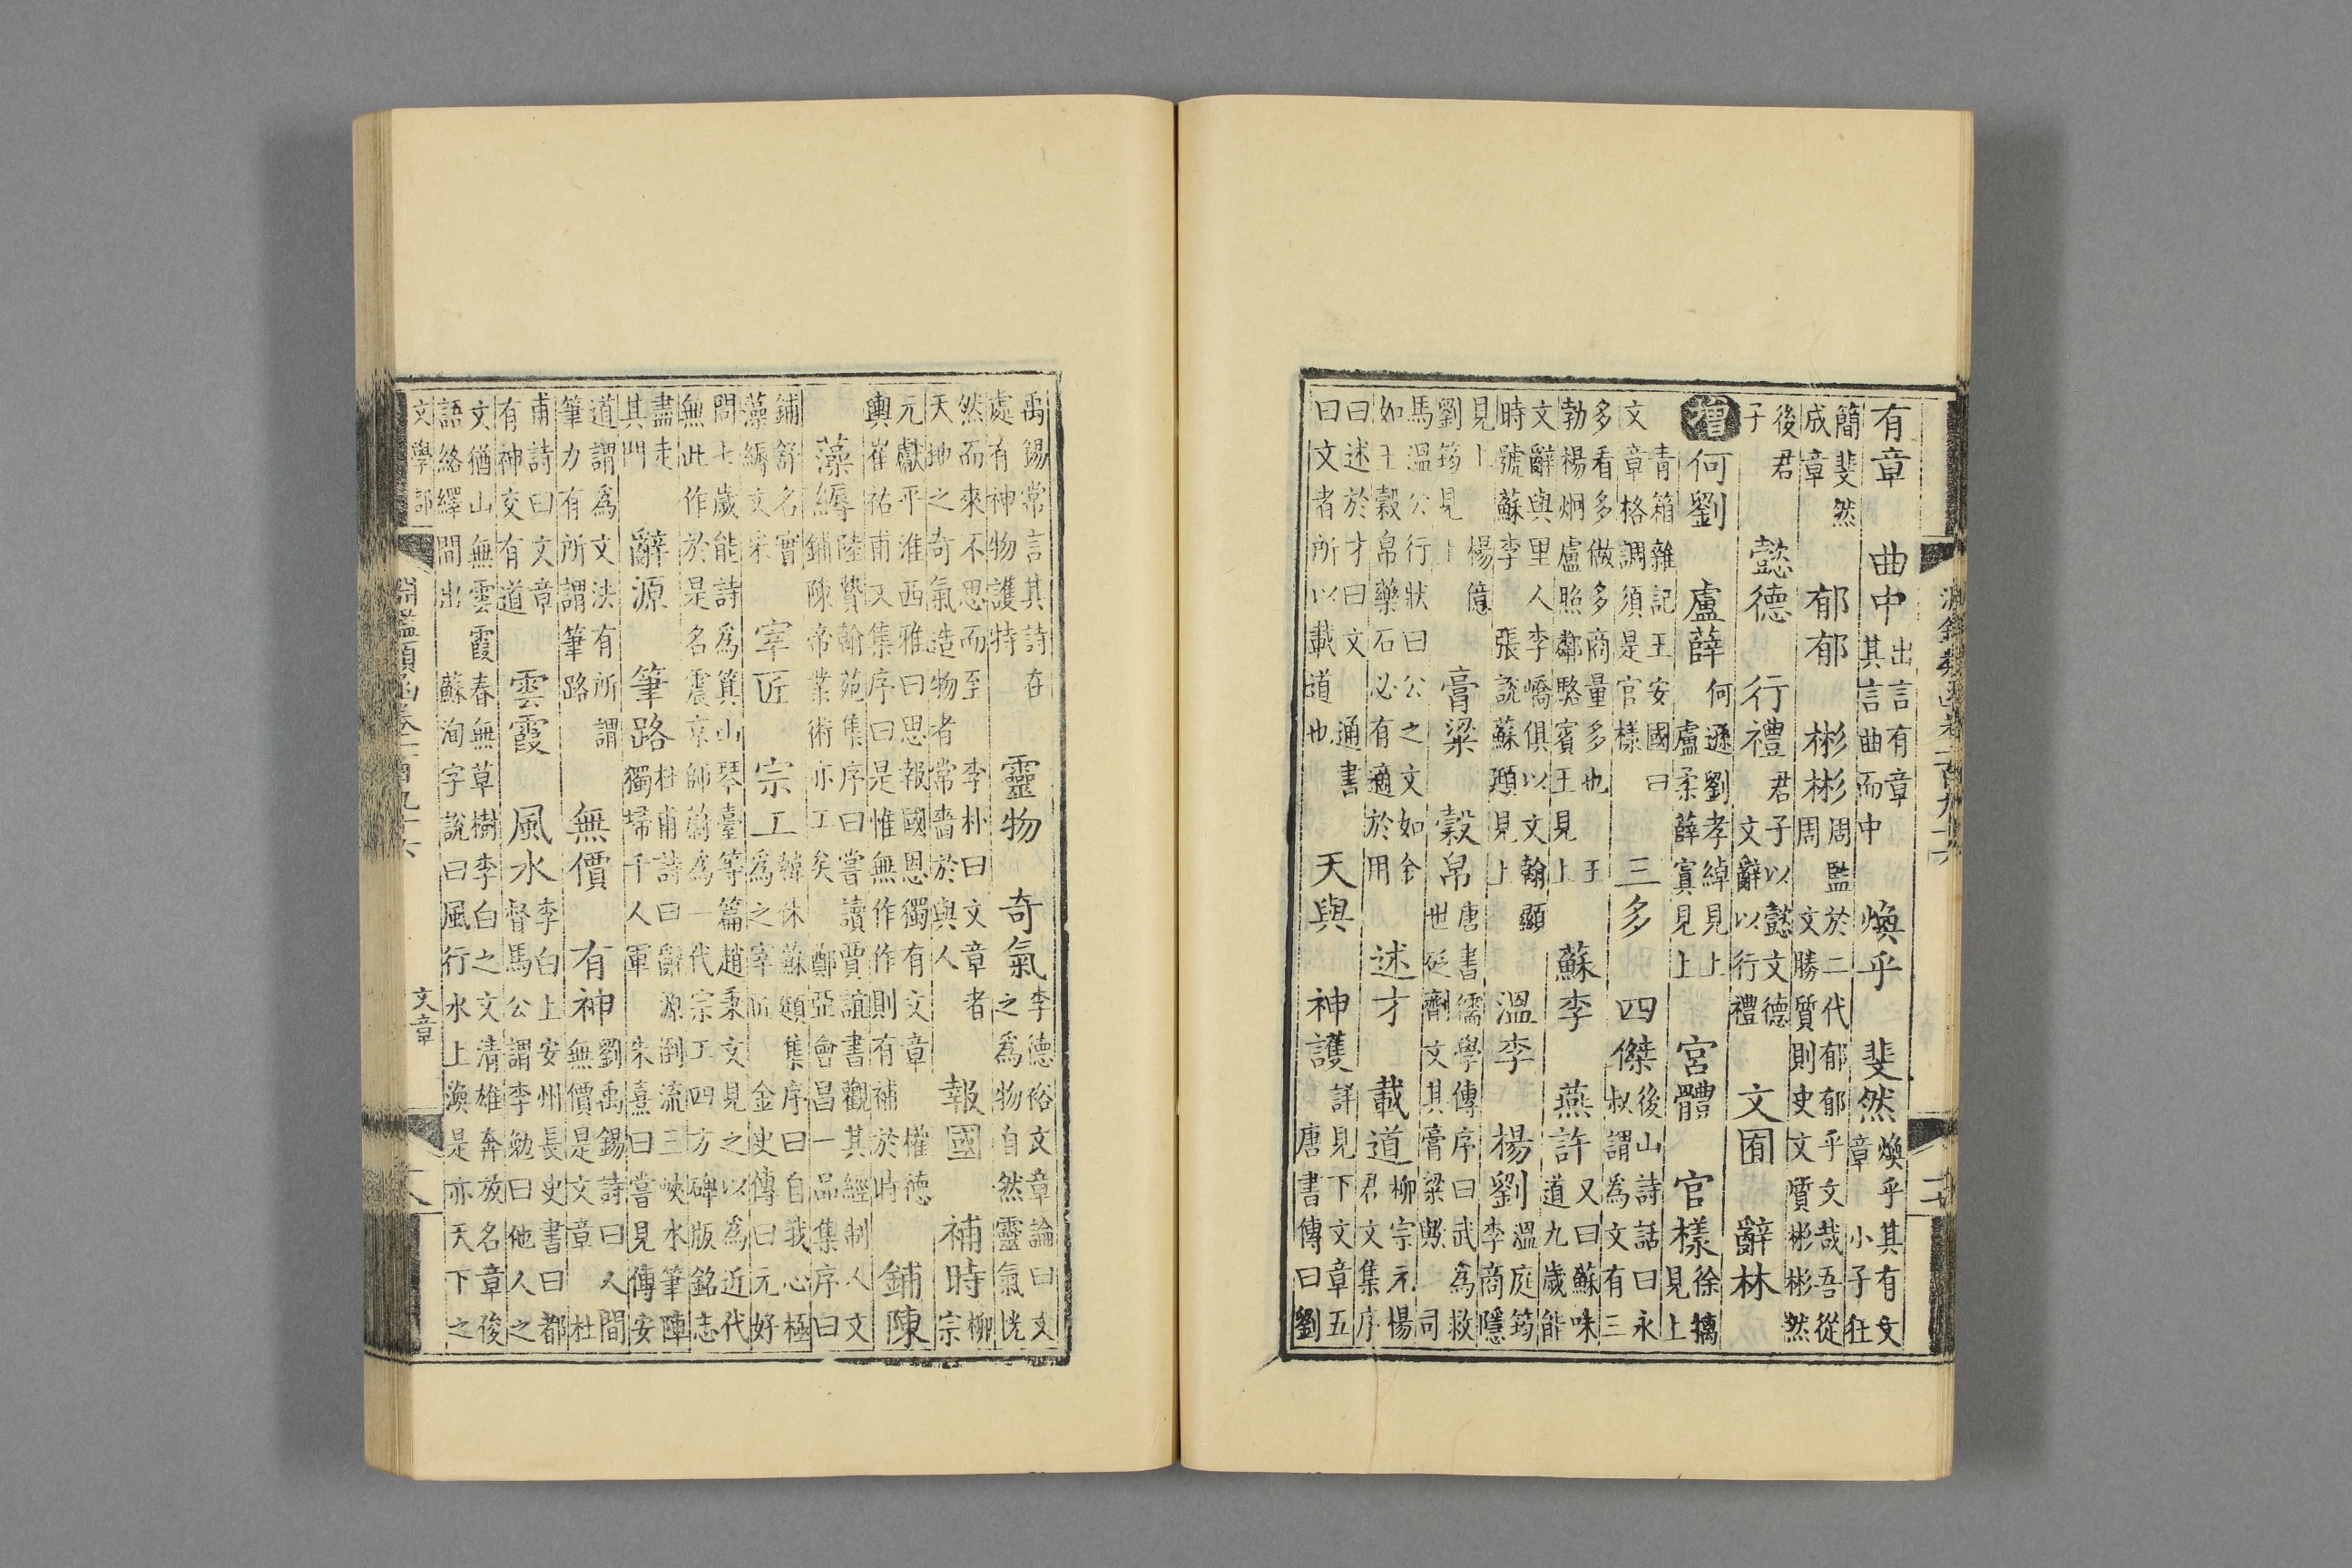 有章　曲中 出言有章其言曲而中　煥乎　斐然 煥乎其有文章　小子狂
簡斐然成章　郁郁　彬彬 周監於二代郁郁乎文哉吾從周　文勝質則史文質彬彬然
後君子　懿德　行禮 君子以懿文德　文辭以行禮　文囿　辭林
增 何劉　盧薛 何遜劉孝綽見上　盧柔薛寘見上　宮體　官樣 徐摛見上
青箱雜記王安國曰文章格調須是官樣　三多　四傑 後山詩話曰永叔謂為文有三
多看多做多商量多也　王勃楊炯盧照鄰駱賓王見上　蘇李　燕許 又曰蘇味道九歲能
文辭與里人李嶠俱以文翰顯時號蘇李　張說蘇頲見上　溫李　楊劉 溫庭筠李商隱
見上　楊億劉筠見上　膏粱　穀帛 唐書儒學傳序曰武為救世砭劑文其膏粱歟　司
馬溫公行狀曰公之文如金如玉穀帛藥石必有適於用　述才　載道 柳宗元楊君文集序
曰述於才曰文　通書曰文者所以載道也　天與　神護 詳見下文章五　唐書傳曰劉
禹錫常言其詩在處有神物護持　靈物　奇氣 李德裕文章論曰文之為物自然靈氣恍
然而來不思而至　李朴曰文章者天地之奇氣造物者常嗇於與人　報國　補時 柳宗
元獻平淮西雅曰思報國恩獨有文章　權德輿崔祐甫文集序曰是惟無作作則有補於時　鋪陳
藻縟 陸贄翰苑集序曰嘗讀賈誼書觀其經制人文鋪陳帝業術亦工矣　鄭亞會昌一品集序曰
鋪舒名實藻縟文采　宰匠　宗工 韓休蘇頲集序曰自我心極為之宰匠　金史傳曰元好
問七歲能詩為箕山琴臺等篇趙秉文見之以為近代無此作於是名震京師蔚為一代宗工四方碑版銘志
盡走其門　辭源　筆路 杜甫詩曰辭源倒流三峽水筆陣獨埽千人軍　朱熹曰嘗見傳安
道謂為文法有所謂筆力有所謂筆路　無價　有神 劉禹錫詩曰人間無價是文章　杜
甫詩曰文章有神交有道　雲霞　風水 李白上安州長史書曰都督馬公謂李勉曰他人之
文猶山無雲霞春無草樹李白之文清雄奔放名章俊語絡繹間出　蘇洵字說曰風行水上渙是亦天下之
文學部　淵鑑類函卷一百九十六　文章